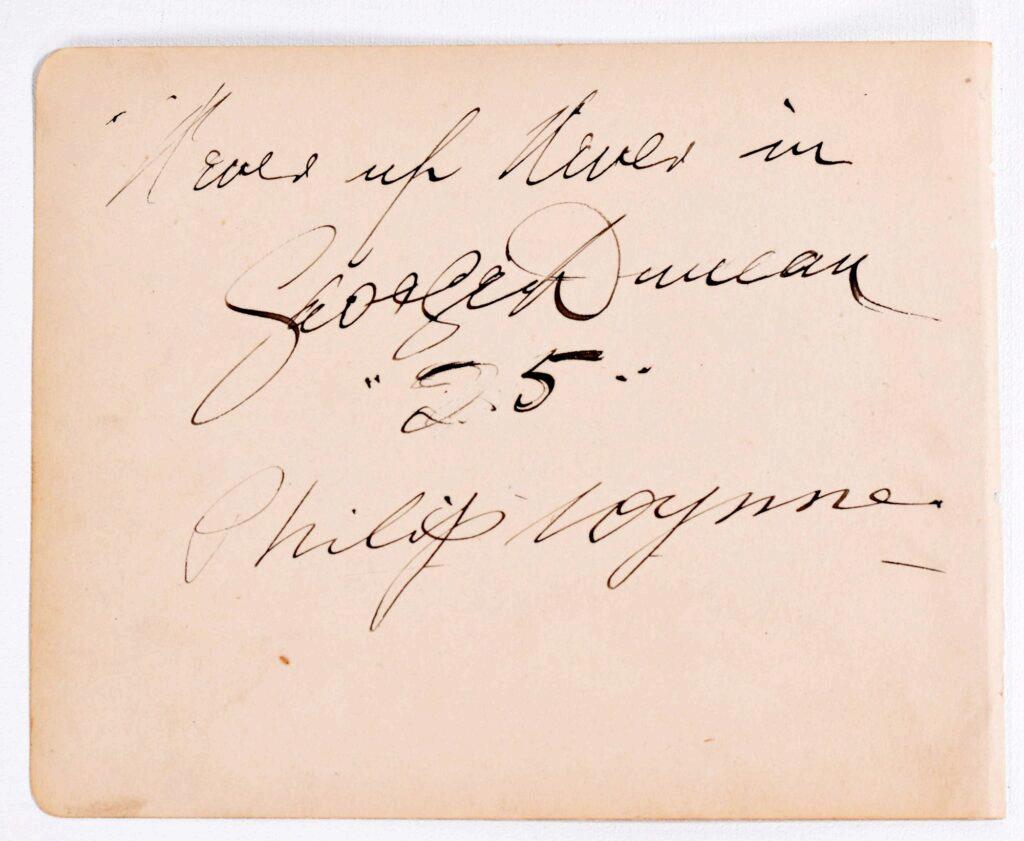 "Never up Never in
George Duncan
"25"
Philip Wynne.